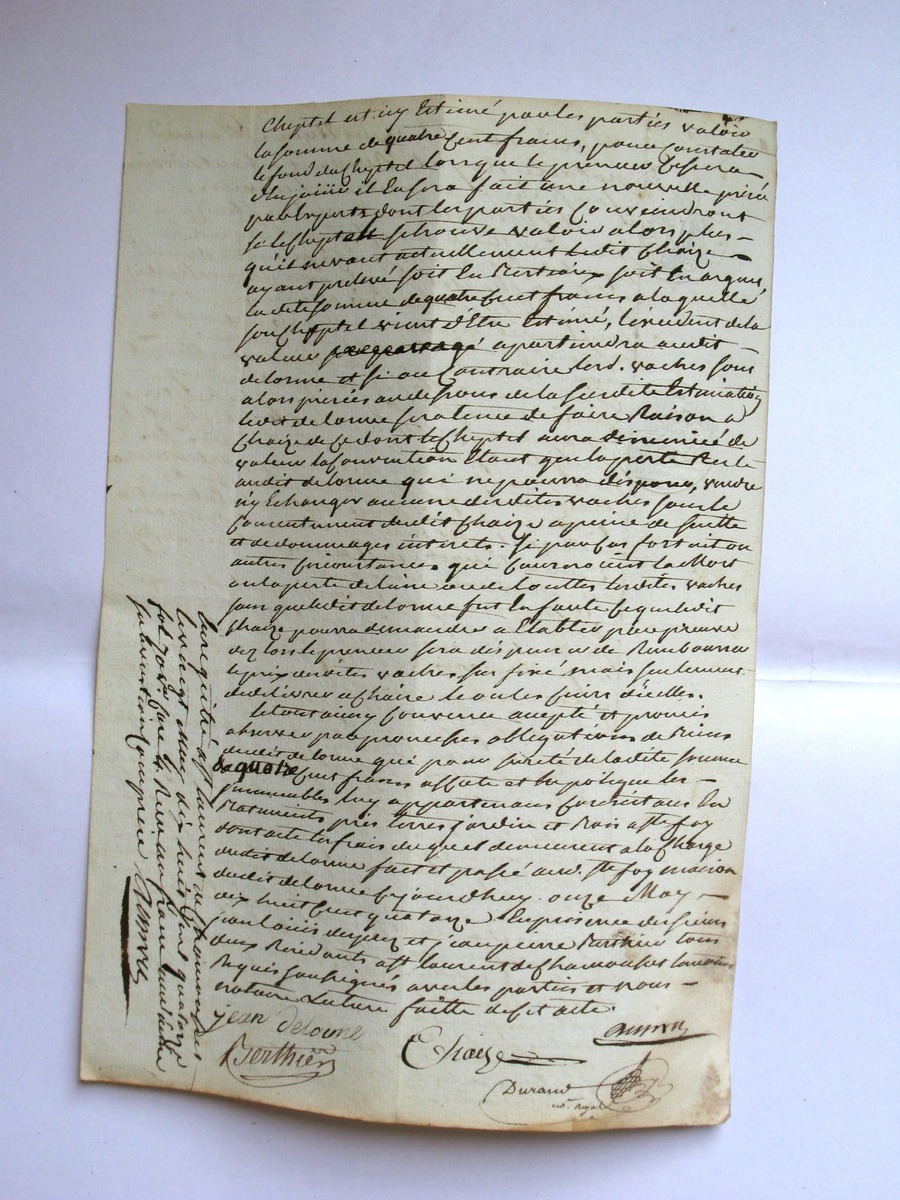 Cheptel est icy Estimé par les parties valoir
la somme de quatre Cent francs, pour constater
le fond du Cheptel lorsque le preneur Cessera
d'en jouir il En sera fait une nouvelle prisée
par Experts dont les parties Conviendront
si le Cheptel se trouve valoir alors plus
qu'il ne vaut actuellement ledit Chaize
ayant prelevé soit En Bestiaux soit En argent,
la dite somme de quatre Cent francs a laquelle
son Cheptel vient d'Etre Estimé, l'excedent de la
valeur apartiendra audit
delorme et si au Contraire lesd. vaches sont
alors prisées au dessous de la susdite Estimation
ledit delorme sera tenu de faire Raison a
Chaize de Ce dont le Cheptel aura diminué de
valeur la Convention Etant que la perte Reste
audit delorme qui ne pourra disposer, vendre
n'y Echanger aucune desdites vaches sans le
Consentement dudit Chaize a peine de
et de dommages interets. Si par Cas fortuit ou
autres Circonstances qui Causeroient la Mort
ou la perte de l'une ou de toutes lesdites vaches
sans que ledit delorme fut En faute Ce que ledit
Chaize pourra demander a Etablir par preuve
dez lors le preneur sera dispensé de Rembourser
le prix desdites vaches sus fixé mais seulement
de delivrer a Chaize le ou les Cuirs d'icelles.
Le tout ainsy Convenu accepté et promis
observer par promesses obligations de Biens
dudit delorme qui pour sureté de ladite somme
de quatre Cent francs affecte et hypotheque les
immeubles luy appartenans Consistans En
Batiments prés terres jardin et Bois a Ste foy
dont acte les frais duquel demeurent a la Charge
dudit delorme fait et passé aud. Ste foy maison
dudit delorme Cejourd'huy onze May
dix huit Cent quatorze En presence des sieurs
jean louis et jean pierre Berthier tous
deux Residants a St laurent de Chamousset temoins
Requis soussignés avec les parties et nous
notaire Lecture faitte desd acte
jean delorme
Berthier
Chaize
Durand
no.re Royal
Enregistré a St laurent de Chamousset
le vingt May dix huit Cent quatorze
fol.